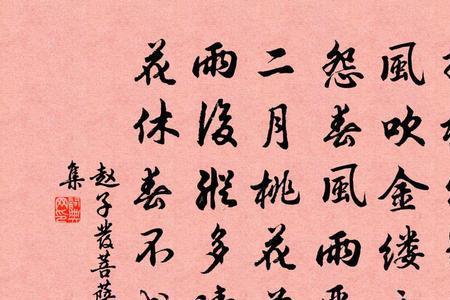 風吹金缕
怨春風雨
二月桃花
雨後縱多
花休春不
赵子發菩薩
集